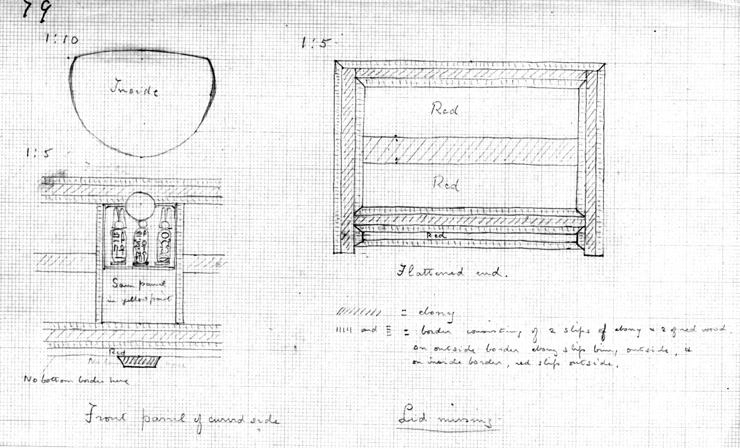 79
1:10
Inside
1:5
Same panel
in yellow paint
Red
No bottom border here
Front panel of curved side
1:5
Red
Red
Red
Flattened end.
= ebony
and = border consisting of 2 slips of ebony & 2 of red wood.
on outside border ebony slip being outside, &
on inside border, red slip outside.
Lid missing